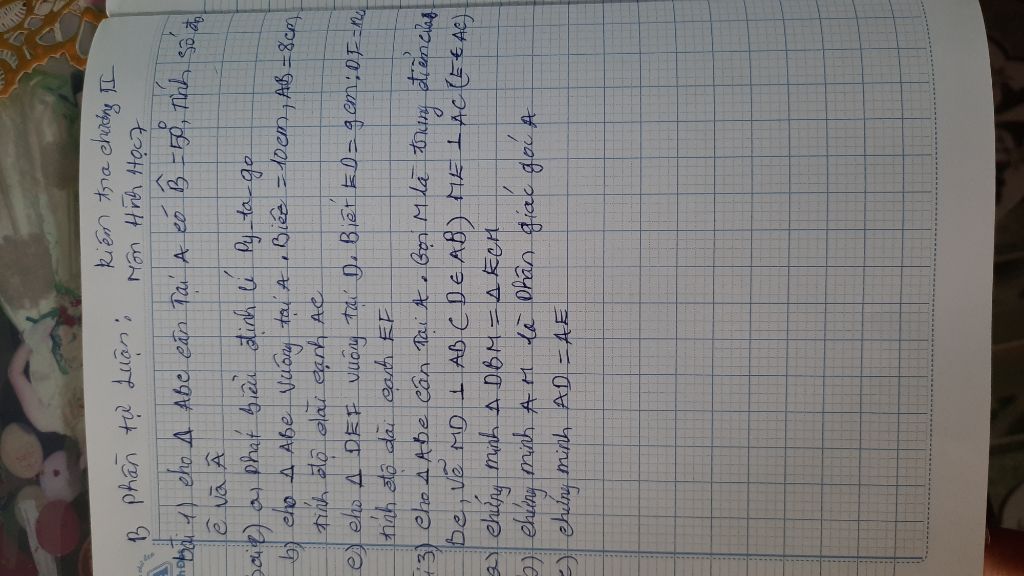 Kiểm tra chương II
B phần tự Luận: Môn Hình Học 7
Bài 1) cho Δ ABC cân tại A có B̂ = 50°, Tính số đo
Ĉ và Â
bài 2) a) phát biểu định lí Py-ta-go
b) cho Δ ABC vuông tại A. Biết = 10cm, AB = 8cm
tính độ dài cạnh AC
c) cho Δ DEF vuông tại D. Biết ED = 9cm; DF =
tính độ dài cạnh EF
3) cho Δ ABC cân tại A. Gọi M là trung điểm của
BC, vẽ MD ⊥ AB (D ∈ AB) ME ⊥ AC (E ∈ AC)
a) chứng minh Δ DBM = Δ ECM
b) chứng minh AM là phân giác góc A
c) chứng minh AD = AE